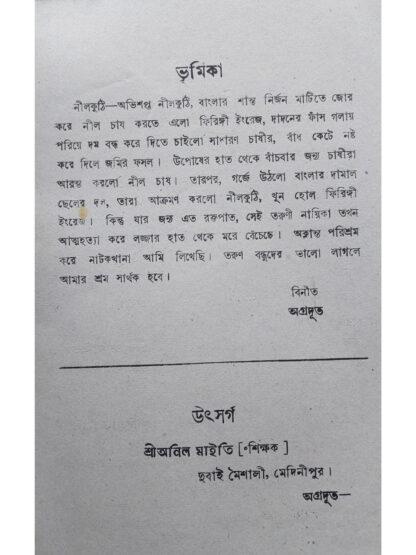 ভূমিকা
নীলকুঠি—অভিশপ্ত নীলকুঠি, বাংলার শান্ত নির্জন মাটিতে জোর
করে নীল চাষ করতে এলো ফিরিঙ্গী ইংরেজ, দাদনের ফাঁস গলায়
পরিয়ে দম বন্ধ করে দিতে চাইলো সাধারণ চাষীর, বাঁধ কেটে নষ্ট
করে দিলে জমির ফসল। উপোষের হাত থেকে বাঁচবার জন্য চাষীরা
আরম্ভ করলো নীল চাষ। তারপর, গর্জে উঠলো বাংলার দামাল
ছেলের দল, তারা আক্রমণ করলো নীলকুঠি, খুন হোল ফিরিঙ্গী
ইংরেজ। কিন্তু যার জন্য এত রক্তপাত, সেই তরুণী নায়িকা তখন
আত্মহত্যা করে লজ্জার হাত থেকে মরে বেঁচেছে। অক্লান্ত পরিশ্রম
করে নাটকখানা আমি লিখেছি। তরুণ বন্ধুদের ভালো লাগলে
আমার শ্রম সার্থক হবে।
বিনীত
অগ্রদূত
উৎসর্গ
শ্রীঅনিল মাইতি [শিক্ষক]
মৈশালী, মেদিনীপুর।
অগ্রদূত—